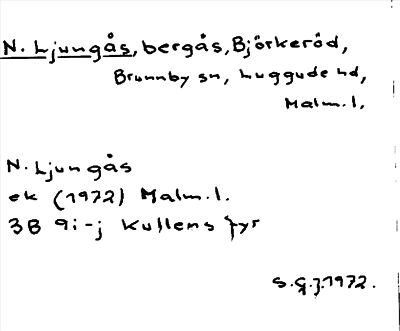 N. Ljungås, bergås, Björkeröd,
Brunnby sn, Luggude hd,
Malm. l.
N. Ljungås
ek (1972) Malm. l.
3B 9i-j Kullens fyr
S.G.J. 1972.